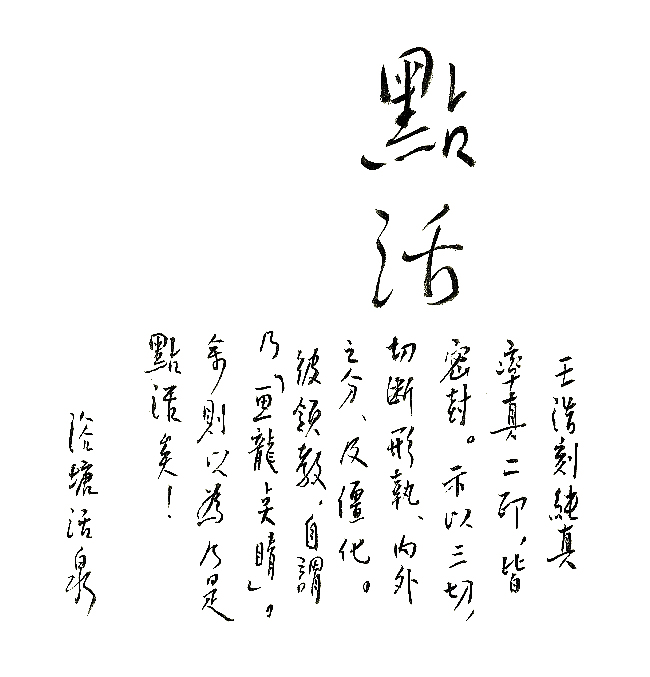 點活
王浩刻純真
率真二印,皆
密封。示以三切,
切斷形執、內外
之分、及僵化。
彼領教,自謂
乃「画龍点睛」。
余則以為乃是
點活矣!
浴塘活泉